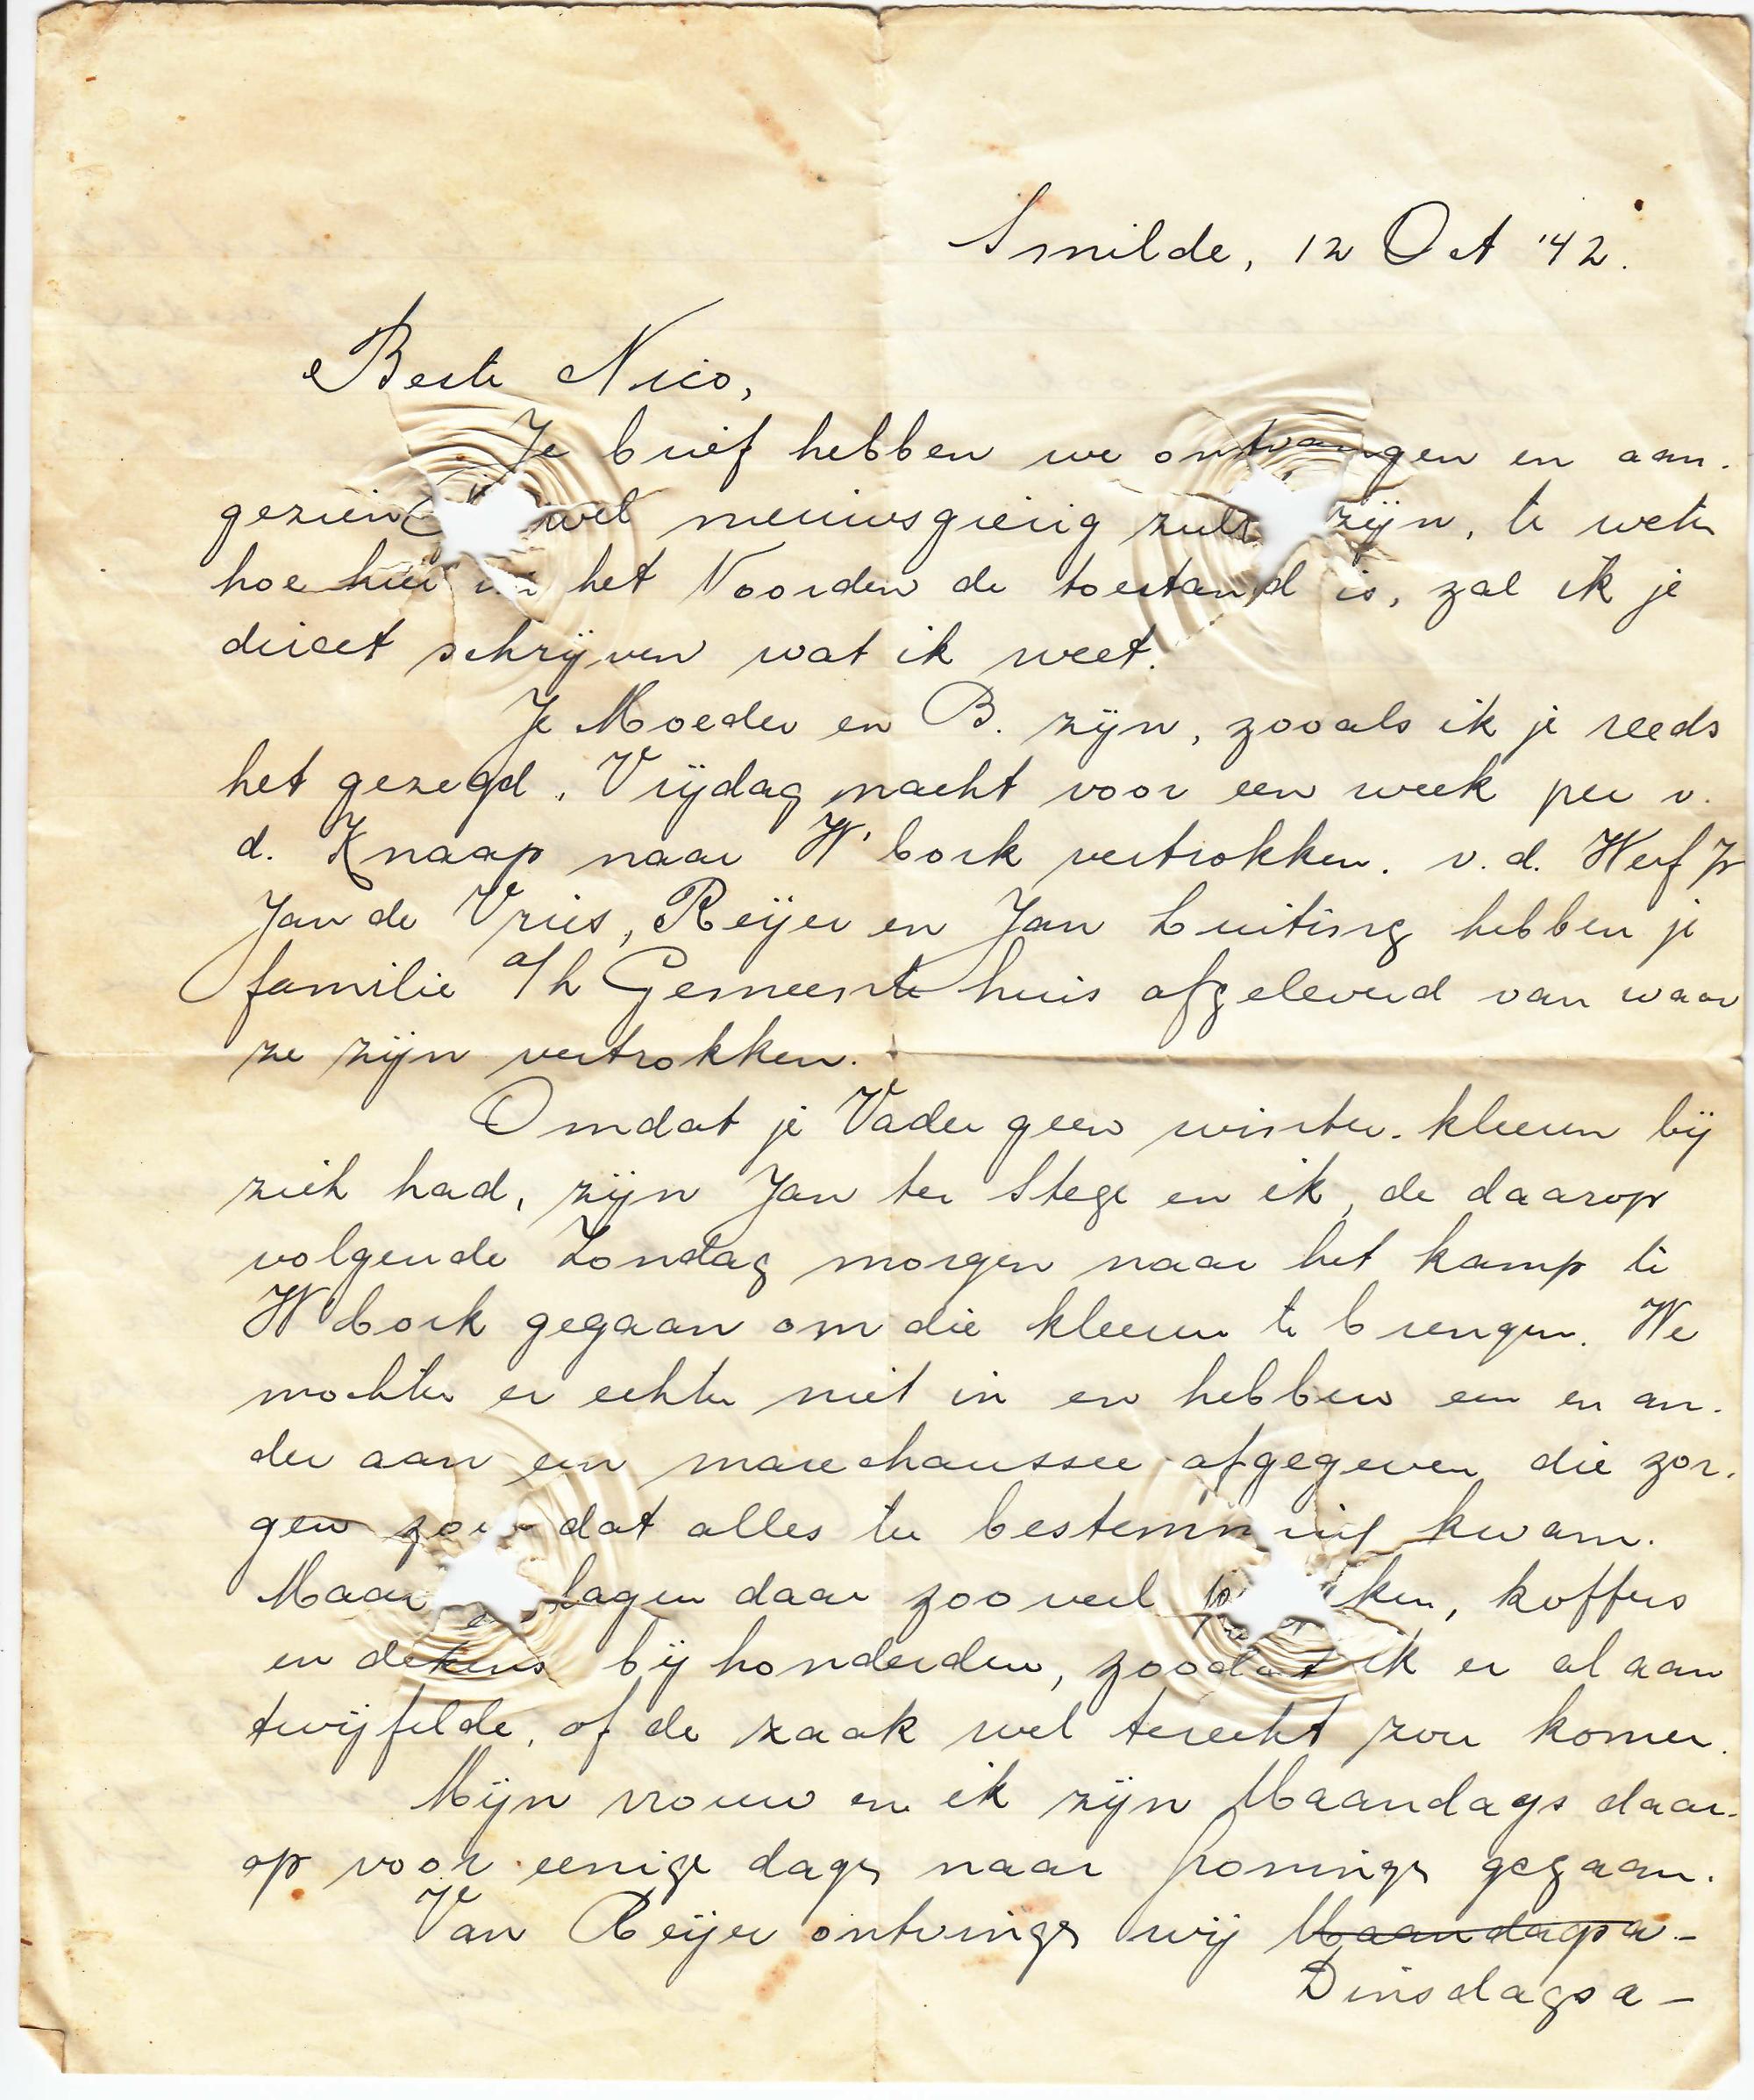 Smilde, 12 Oct '42.
Beste Nico,
Je brief hebben we ontvangen en aan-
gezien wel nieuwsgierig zult zijn, te weten
hoe hier in het Noorden de toestand is, zal ik je
direct schrijven wat ik weet.
Je Moeder en B. zijn, zooals ik je reeds
heb gezegd, Vrijdag nacht voor een week per v.
d. Knaap naar W'bork vertrokken. v. d. Werf
Jan de Vries, Reijer en Jan Luiting hebben je
familie a/h Gemeentehuis afgeleverd van waar
ze zijn vertrokken.
Omdat je Vader geen winter-kleeren bij
zich had, zijn Jan ter Stege en ik, de daarop
volgende Zondag morgen naar het kamp te
W'bork gegaan om die kleeren te brengen. We
mochten er echter niet in en hebben een en an-
der aan een marechaussee afgegeven die zor-
gen zou dat alles ter bestemming kwam.
Maar lagen daar zooveel koffers
en dekens bij honderden, zoodat ik er al aan
twijfelde, of de zaak wel terecht zou komen.
Mijn vrouw en ik zijn Maandags daar-
op voor eenige dagen naar Groningen gegaan.
Van Reijer ontvingen wij Maandagsa-
Dinsdagsa-